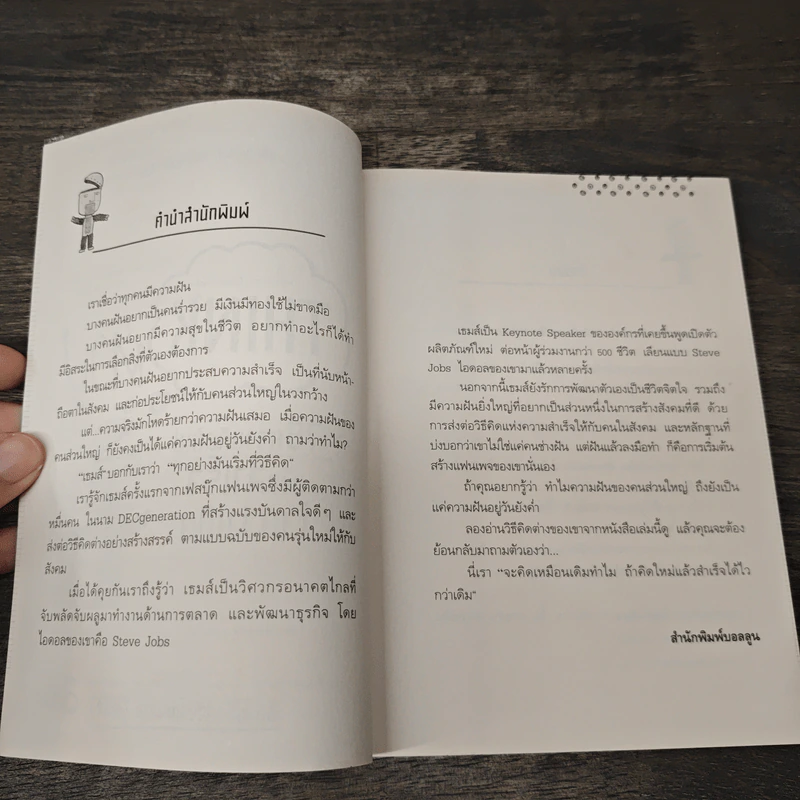 คำนำสำนักพิมพ์
เราเชื่อว่าทุกคนมีความฝัน
บางคนฝันอยากเป็นคนร่ำรวย มีเงินมีทองใช้ไม่ขาดมือ
บางคนฝันอยากมีความสุขในชีวิต อยากทำอะไรก็ได้ทำ
มีอิสระในการเลือกสิ่งที่ตัวเองต้องการ
ในขณะที่บางคนฝันอยากประสบความสำเร็จ เป็นที่นับหน้า-
ถือตาในสังคม และก่อประโยชน์ให้กับคนส่วนใหญ่ในวงกว้าง
แต่...ความจริงมักโหดร้ายกว่าความฝันเสมอ เมื่อความฝันของ
คนส่วนใหญ่ ก็ยังคงเป็นได้แค่ความฝันอยู่วันยังค่ำ ถามว่าทำไม?
"เธมส์" บอกกับเราว่า "ทุกอย่างมันเริ่มที่วิธีคิด"
เรารู้จักเธมส์ครั้งแรกจากเฟสบุ๊กแฟนเพจซึ่งมีผู้ติดตามกว่า
หมื่นคน ในนาม DECgeneration ที่สร้างแรงบันดาลใจดีๆ และ
ส่งต่อวิธีคิดต่างอย่างสร้างสรรค์ ตามแบบฉบับของคนรุ่นใหม่ให้กับ
สังคม
เมื่อได้คุยกันเราถึงรู้ว่า เธมส์เป็นวิศวกรอนาคตไกลที่
จับพลัดจับผลูมาทำงานด้านการตลาด และพัฒนาธุรกิจ โดย
ไอดอลของเขาคือ Steve Jobs
เธมส์เป็น Keynote Speaker ขององค์กรที่เคยขึ้นพูดเปิดตัว
ผลิตภัณฑ์ใหม่ ต่อหน้าผู้ร่วมงานกว่า 500 ชีวิต เลียนแบบ Steve
Jobs ไอดอลของเขามาแล้วหลายครั้ง
นอกจากนี้เธมส์ยังรักการพัฒนาตัวเองเป็นชีวิตจิตใจ รวมถึง
มีความฝันยิ่งใหญ่ที่อยากเป็นส่วนหนึ่งในการสร้างสังคมที่ดี ด้วย
การส่งต่อวิธีคิดแห่งความสำเร็จให้กับคนในสังคม และหลักฐานที่
บ่งบอกว่าเขาไม่ใช่แค่คนช่างฝัน แต่ฝันแล้วลงมือทำ ก็คือการเริ่มต้น
สร้างแฟนเพจของเขานั่นเอง
ถ้าคุณอยากรู้ว่า ทำไมความฝันของคนส่วนใหญ่ ถึงยังเป็น
แค่ความฝันอยู่วันยังค่ำ
ลองอ่านวิธีคิดต่างของเขาจากหนังสือเล่มนี้ดู แล้วคุณจะต้อง
ย้อนกลับมาถามตัวเองว่า...
นี่เรา "จะคิดเหมือนเดิมทำไม ถ้าคิดใหม่แล้วสำเร็จได้ไว
กว่าเดิม"
สำนักพิมพ์บอลลูน